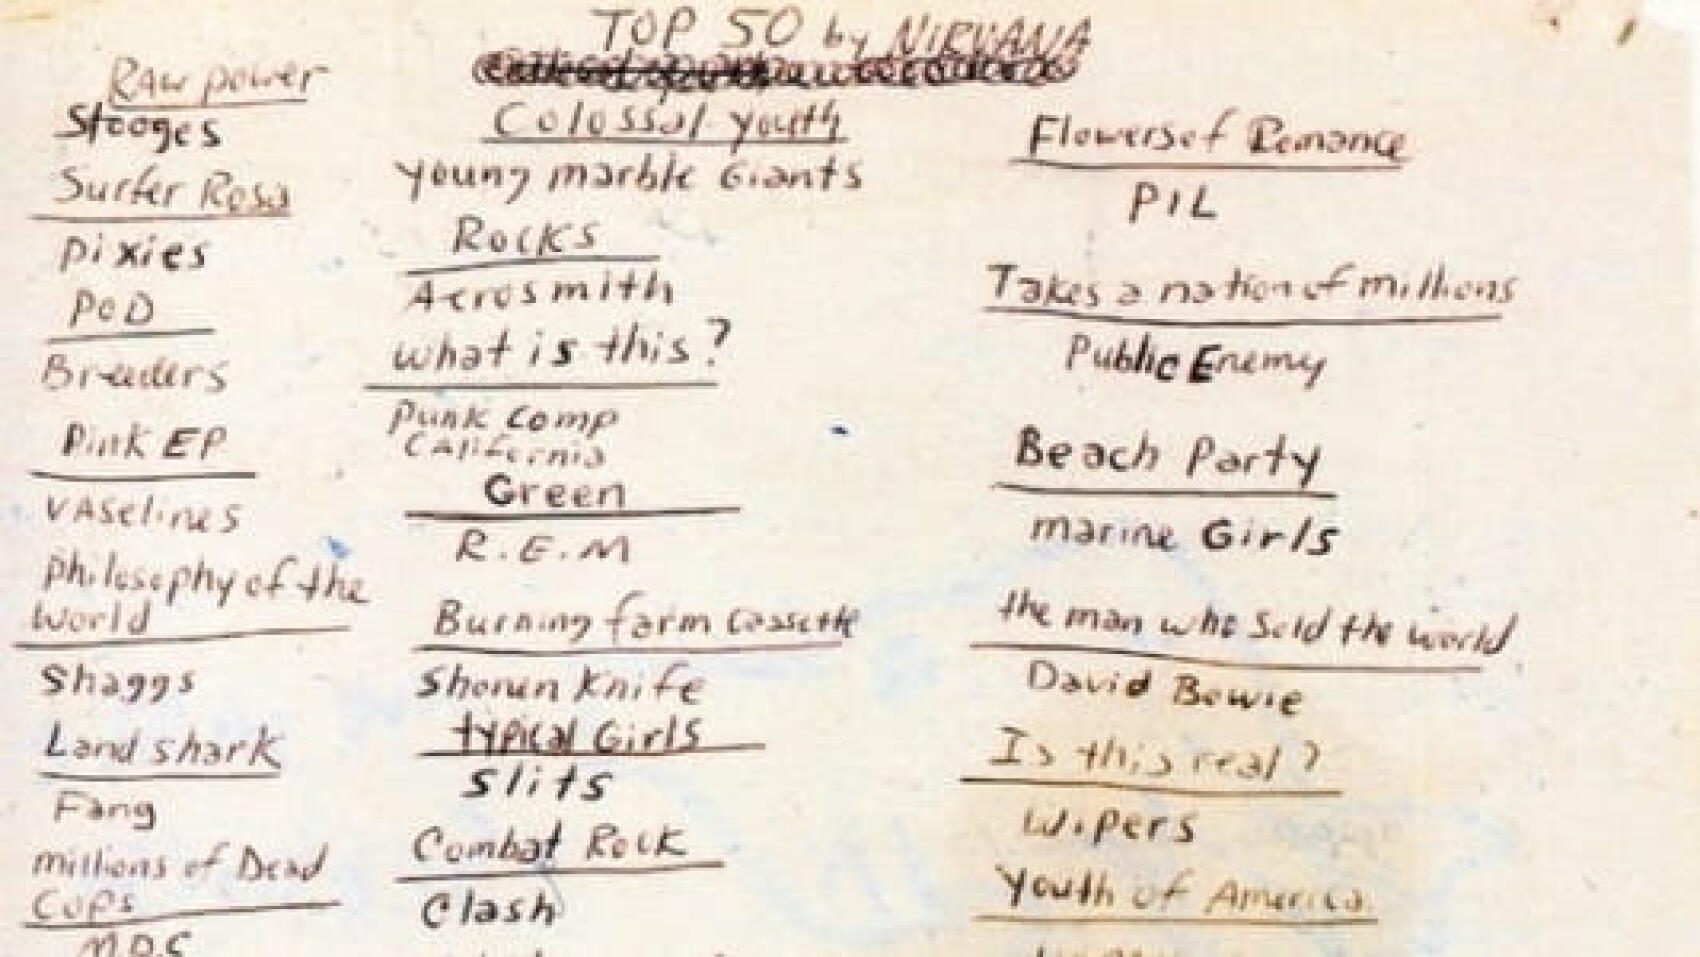 TOP 50 by NIRVANA
Raw power
Stooges
Surfer Rosa
Pixies
POD
Breeders
Pink EP
VASelines
Philosophy of the
World
Shaggs
Land shark
Fang
millions of Dead
Cops
M.D.C
Colossal youth
young marble Giants
Rocks
Aerosmith
what is this?
Punk Comp
California
Green
R.E.M
Burning farm Cassette
Shonen Knife
typical Girls
slits
Combat Rock
Clash
Flowers of Romance
PIL
Takes a nation of millions
Public Enemy
Beach Party
marine Girls
the man who Sold the world
David Bowie
Is this real?
Wipers
Youth of America